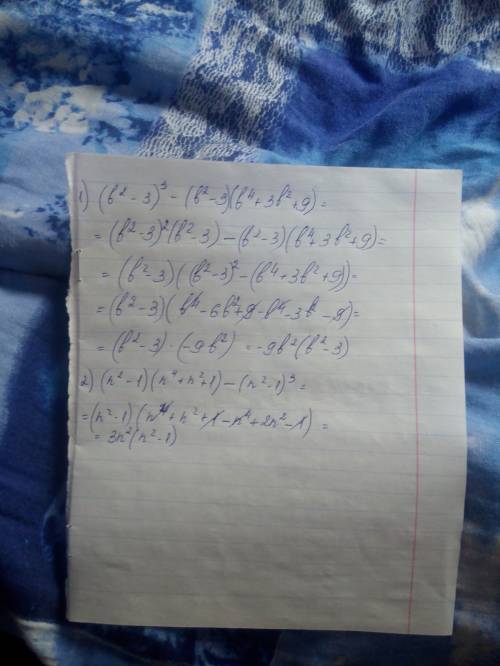 1) (b² - 3)³ - (b² - 3)(b⁴ + 3b² + 9) =
= (b² - 3)² (b² - 3) - (b² - 3)(b⁴ + 3b² + 9) =
= (b² - 3)((b² - 3)² - (b⁴ + 3b² + 9)) =
= (b² - 3)(b⁴ - 6b² + 9 - b⁴ - 3b² - 9) =
= (b² - 3) · (-9b²) = -9b² (b² - 3)
2) (n² - 1)(n⁴ + n² + 1) - (n² - 1)³ =
= (n² - 1)(n⁴ + n² + 1 - n⁴ + 2n² - 1) =
= 3n² (n² - 1)